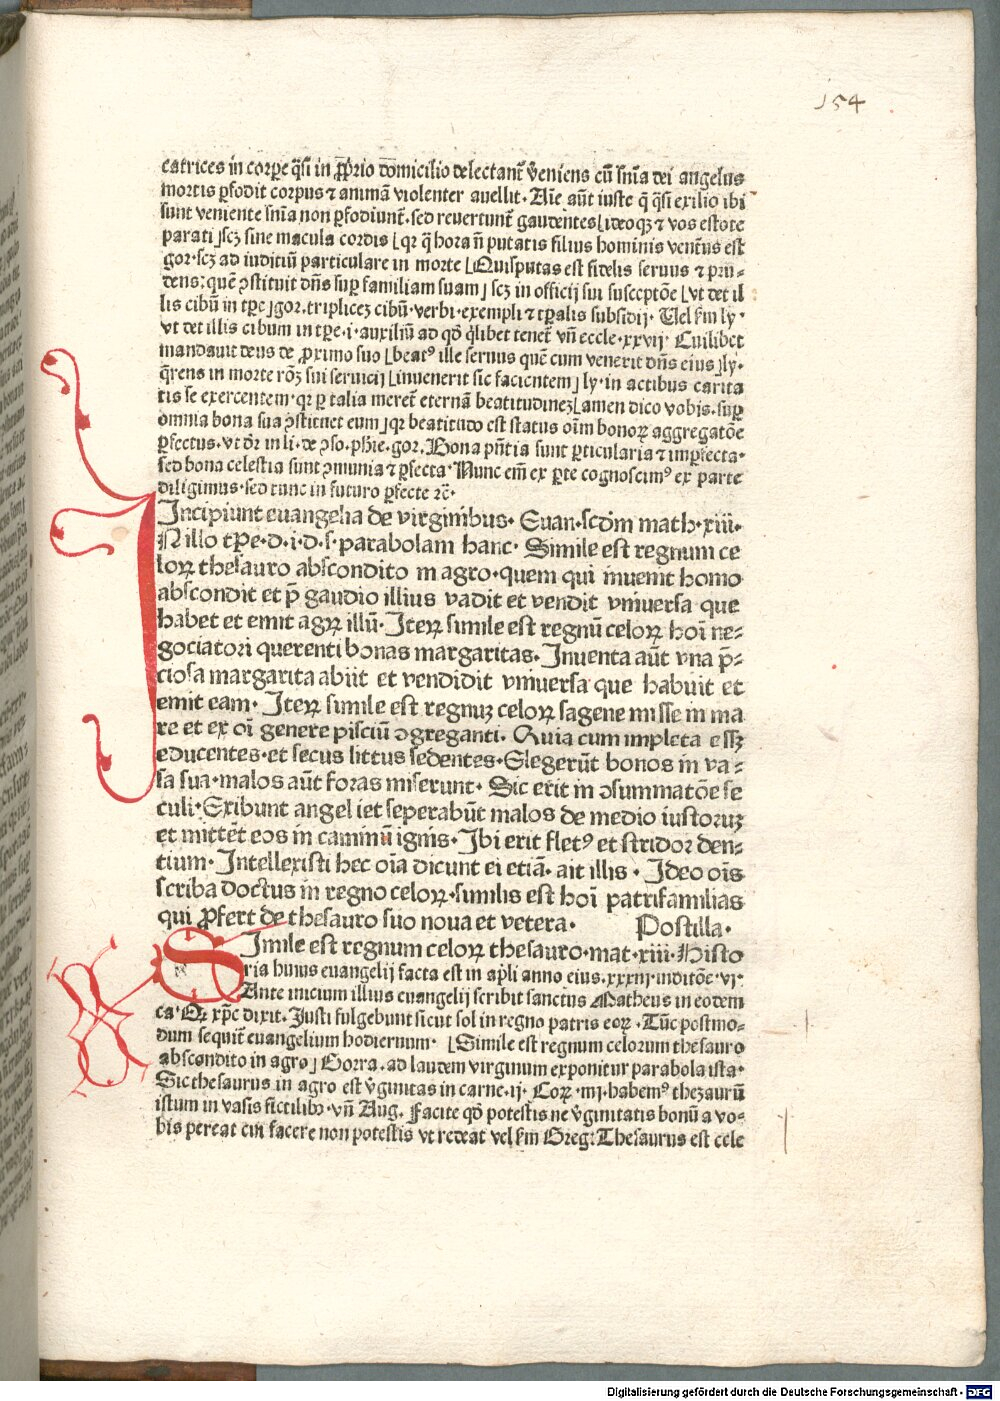 154
catrices in corꝑe q̄si in ꝓprio domicilio delectant᷑ v̄eniens cū sn̄ia dei angelus
mortis ꝑfodit corpus ⁊ animā violenter auellit. Aīe aūt iuste q̄ q̄si exilio ibi
sunt veniente sn̄ia non ꝑfodiunt᷑. sed reuertunt᷑ gaudentes ⌊ideoqꝫ ⁊ vos estote
parati⌋ scꝫ sine macula cordis ⌊qꝛ q̄ hora n̄ putatis filius hominis vent᷑us est
gor. scꝫ ad iuditiū particulare in morte ⌊Quisputas est fidelis seruus ⁊ pru⸗
dens: quē ꝯstituit dn̄s suꝑ familiam suam⌋ scꝫ in officij sui susceptōe ⌊vt det il
lis cibū in tꝑe⌋ gor. triplicez cibū. verbi. exempli ⁊ tꝑalis subsidij. Uel ẜm ly.
vt det illis cibum in tꝑe. i. auxiliū ad qđ q̄libet tenet᷑ vn̄ eccle. xxvij. Cuilibet
mandauit deus de ꝓximo suo ⌊beatꝰ ille seruus quē cum venerit dn̄s eius⌋ ly.
q̄rens in morte rōꝫ sui seruicij ⌊inuenerit sic facientem⌋ ly. in actibus carita
tis se exercentem. qꝛ ꝑ talia meret᷑ eternā beatitudinez ⌊amen dico vobis. suꝑ
omnia bona sua ꝯstituet eum⌋ qꝛ beatitudo est status oīm bonoꝝ aggregatōe
ꝑfectus. vt dr̄ in li. de ꝯso. phie. gor. Bona pn̄tia sunt ꝑticularia ⁊ imꝑfecta.
sed bona celestia sunt ꝯmunia ⁊ ꝑfecta. Nunc em̄ ex ꝑte cognoscimꝰ ex parte
diligimus. sed tunc in futuro ꝑfecte ⁊c̄.
Incipiunt euangelia de virginibus. Euan. scd̄m math. xiii.
IN illo tꝑe. d. i. d. s. parabolam hanc. Simile est regnum ce
loꝝ thesauro abscondito in agro. quem qui inuenit homo
abscondit et p̄ gaudio illius vadit et vendit vniuersa que
habet et emit agꝝ illū. Iteꝝ simile est regnū celoꝝ hoī ne⸗
gociatori querenti bonas margaritas. Inuenta aūt vna p̄⸗
ciosa margarita abiit et vendidit vniuersa que habuit et
emit eam. Iteꝝ simile est regnuꝫ celoꝝ sagene misse in ma
re et ex oī genere pisciū ꝯgreganti. Quia cum impleta essꝫ
educentes. et secus littus sedentes. Elegerūt bonos in va⸗
sa sua. malos aūt foras miserunt. Sic erit in ꝯsummatōe se
culi. Exibunt angel iet seperabūt malos de medio iustoruꝫ
et mittēt eos in caminū ignis. Ibi erit fletꝰ et stridor den⸗
tium. Intellexisti hec oīa dicunt ei etiā. ait illis. Ideo oīs
scriba doctus in regno celoꝝ. similis est hoī patrifamilias
qui ꝓfert de thesauro suo noua et vetera. Postilla.
SImile est regnum celoꝝ thesauro. mat. xiii. Histo
ria huius euangelij facta est in apli anno eius. xxxij. inditōe. vj.
Ante inicium illius euangelij scribit sanctus Matheus in eodem
ca. Qꝛ xp̄c dixit. Justi fulgebunt sicut sol in regno patris eoꝝ. Tūc postmo⸗
dum sequit᷑ euangelium hodiernum. ⌊Simile est regnum celorum thesauro
abscondito in agro⌋ Gorra. ad laudem virginum exponitur parabola ista.
Sic thesaurus in agro est v̄ginitas in carne. ij. Coꝝ. iiij. habemꝰ thezaurū
istum in vasis fictilibꝫ. vn̄ Aug. Facite qđ potestis ne v̄ginitatis bonū a vo⸗
bis pereat cui facere non potestis vt redeat vel ẜm Greg: Thesaurus est cele
Digitalisierung gefördert durch die Deutsche Forschungsgemeinschaft - DFG